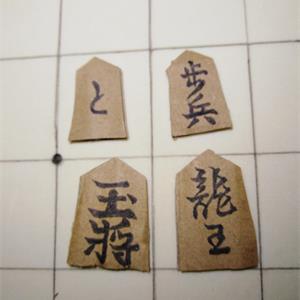 と
歩兵
玉将
龍王